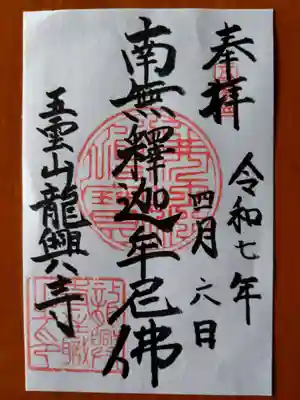 奉拝
令和七年
四月六日
南無釋迦牟尼佛
五雲山龍興寺